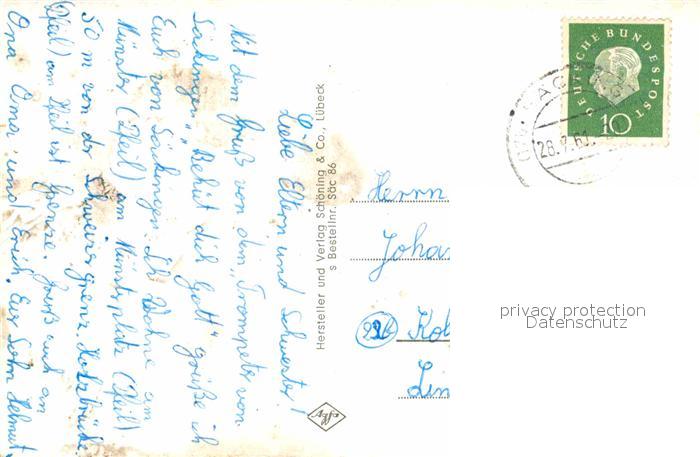 Liebe Eltern und Schwester!
Mit dem Gruß von dem „Trompeter von
Säckingen" „Behüt dich Gott" grüße ich
Euch von Säckingen. Ich Wohne am
Münster (Pfeil) am Münsterplatz (Pfeil)
50 m von der Schweizergrenz Holzbrücke
(Pfeil) am Pfeil ist Grenze. Gruß auch an
Opa Oma und Erich. Euer Sohn Helmut.
Hersteller und Verlag Schöning & Co., Lübeck
s Bestellnr. Säc 86
Agfa
DEUTSCHE BUNDESPOST
10
Herrn
Joha
Kob
Lin
privacy protection
Datenschutz